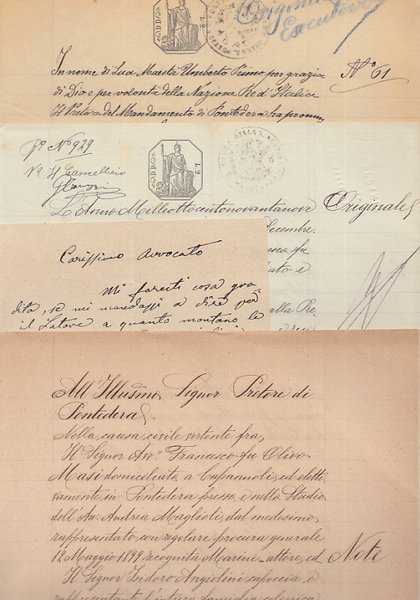 Originale
Esecutivo
In nome di Sua Maestà Umberto Primo per grazia
di Dio e per volontà della Nazione Re d'Italia
Il Pretore del Mandamento di Pontedera ha pronun
N° 61
N° 929
Il Cancelliere
L'Anno Milleottocentonovantanove
Originale
Dicembre
Carissimo Avvocato
Mi faresti cosa gra
dita, se mi mandassi a dire per
il Latore a quanto montano le
alla Pre
All'Illusmo Signor Pretore di
Pontedera.
Nella causa civile vertente fra,
Il Signor Avv. Francesco fu Olivo
Masi domiciliato a Capannoli, ed eletti-
vamente in Pontedera presso, e nello Studio
dell'Avv. Andrea Maglioli, dal medesimo
rappresentato con regolare procura generale
12 Maggio 1899 recognita Marini - attore, ed
Note
Il Signor Isidoro Angiolini capoccia, e
rappresentante l'intera famiglia colonica